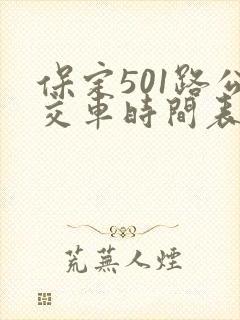 保定501路公
交車時間表
荒蕪人煙